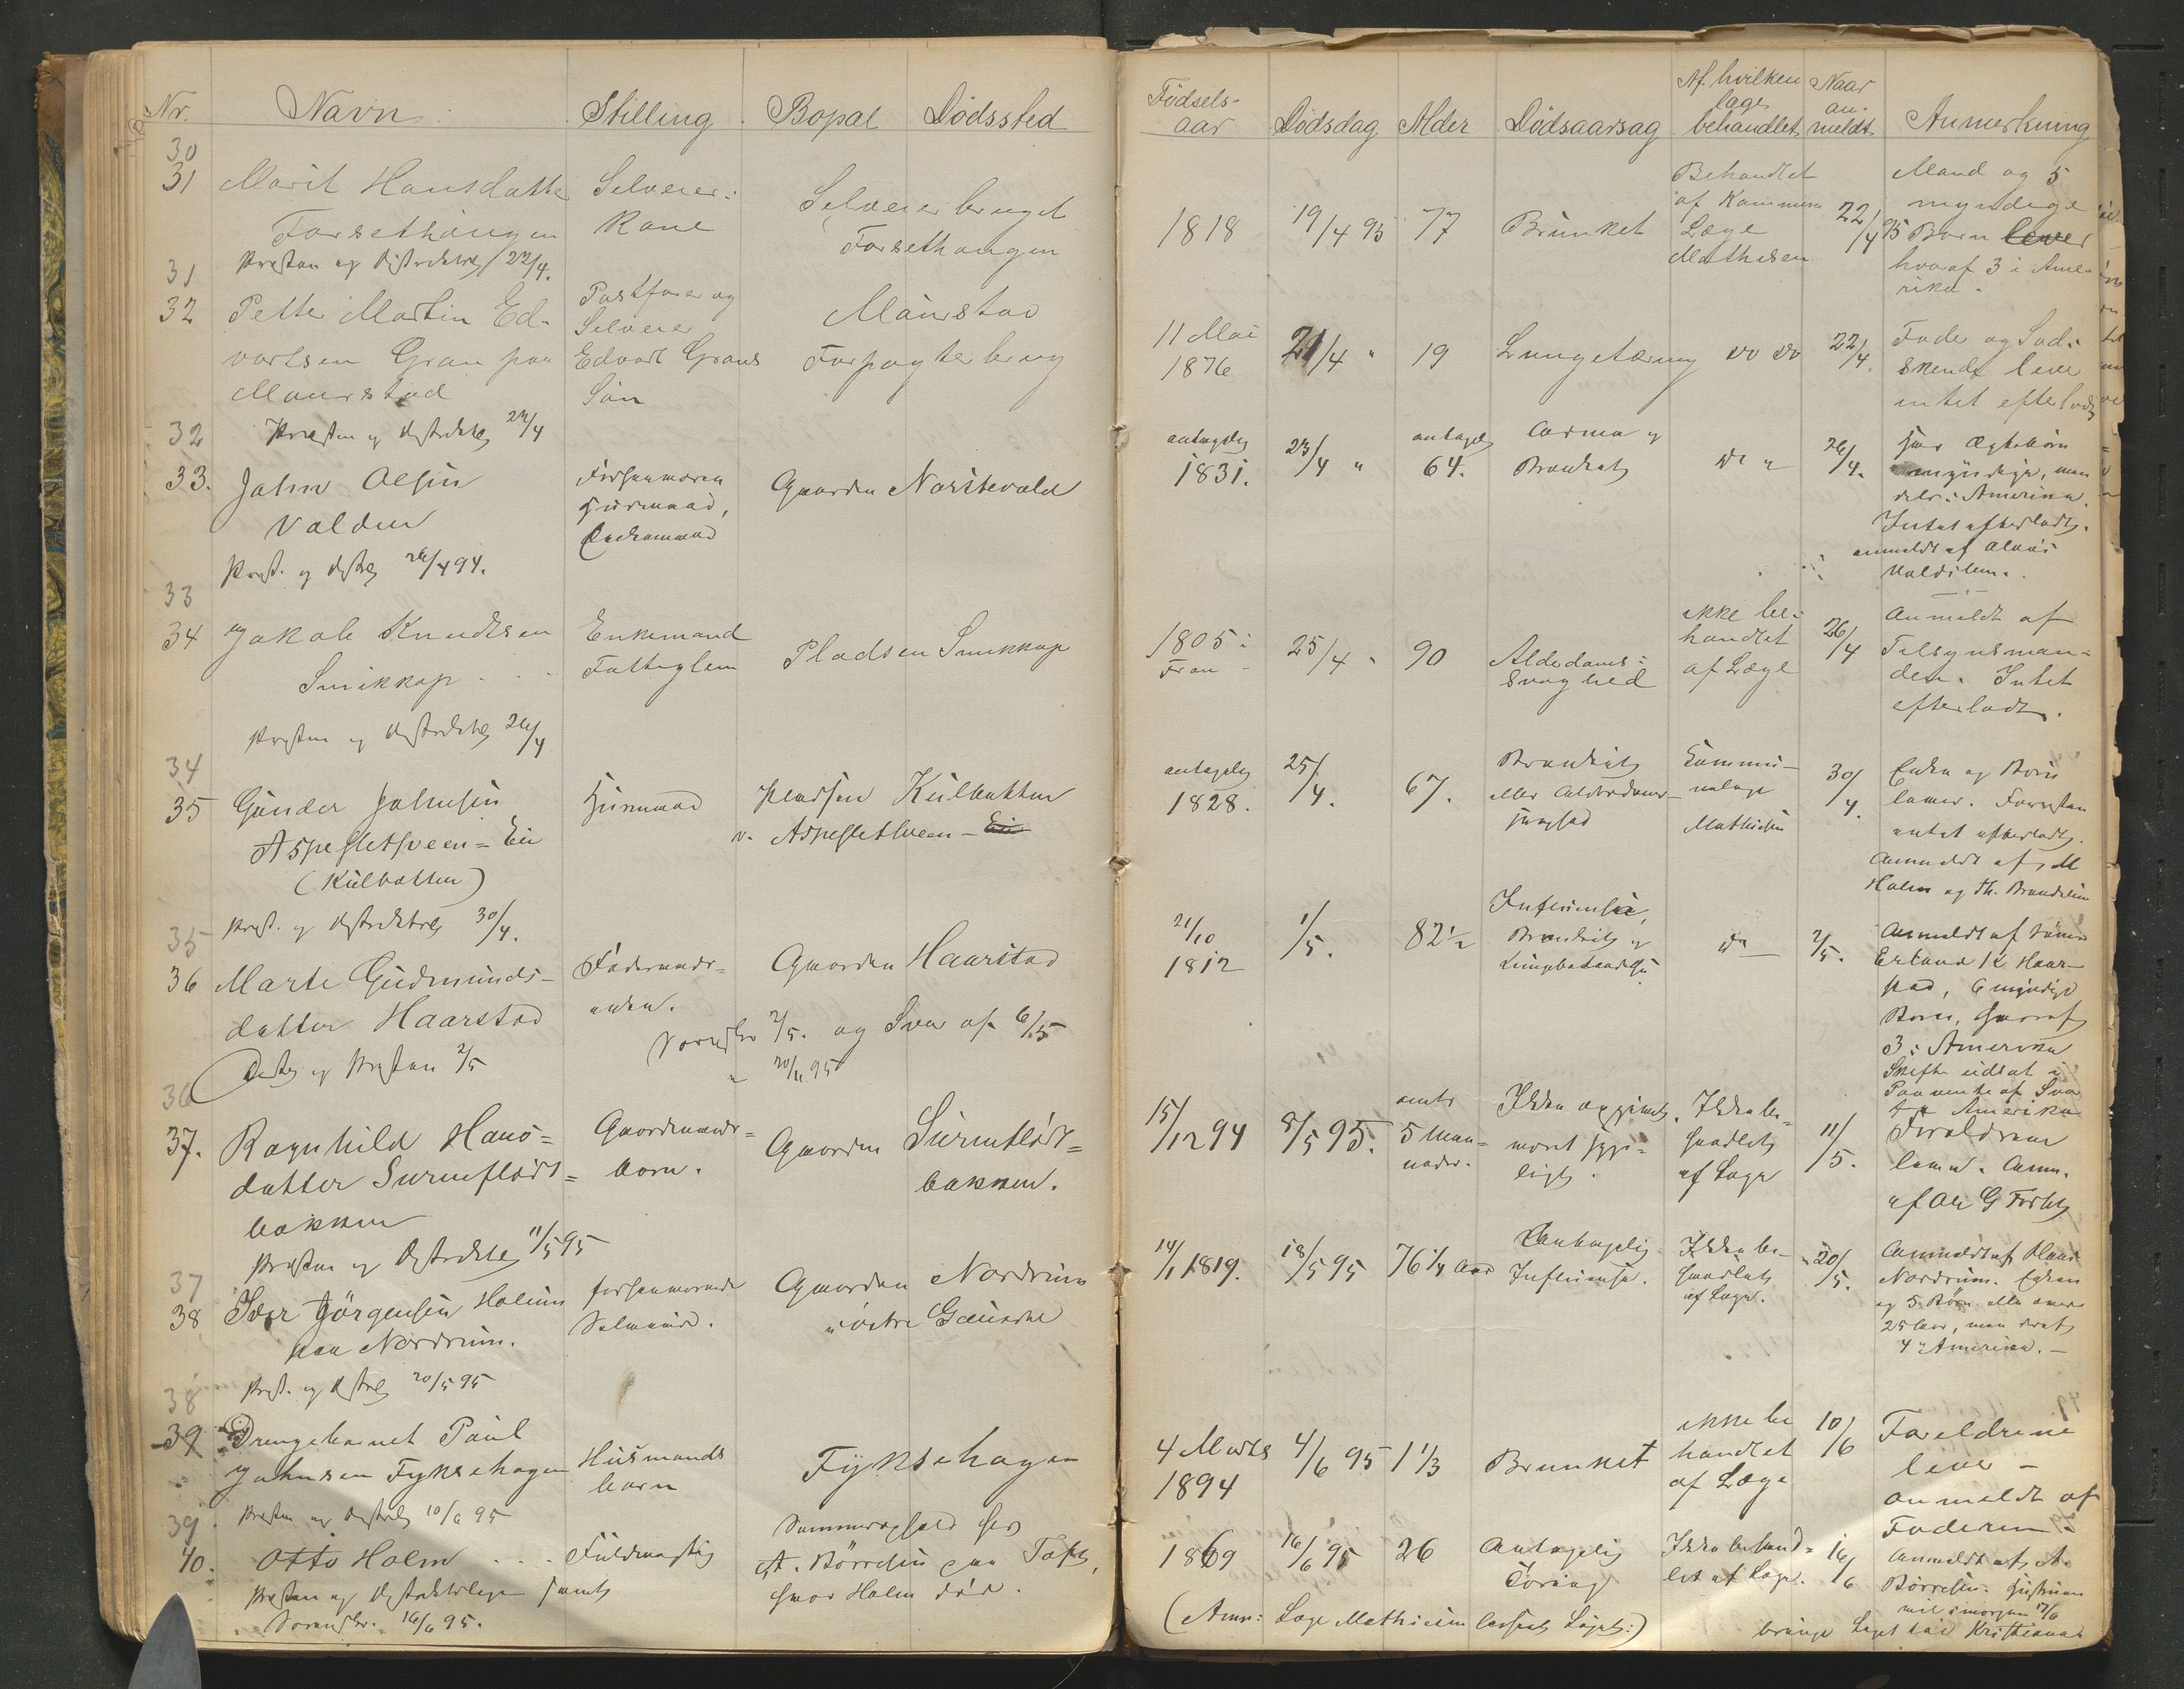 Nr. Navn Stilling Bopæl Dødssted
Fødsels-
aar
Dødsdag Alder Dødsaarsag
Af hvilken
læge
behandlet
Naar
an-
meldt
Anmerkning
30
31 Marit Hansdatter
Forsethaugen
Presten og Distriktslg 22/4.
Selveier-
kone
Selveierbruget
Forsethaugen
1818 19/4 95 77 Brunket
Behandlet
af Kommune
Læge
Mathesen
22/4 95
Mand og 5
myndige
Born lever
hvoraf 3 i Ame-
rika.
31
32 Petter Martin Ed-
vartsen Gran paa
Maurstad
Presten og Distriktslg 22/4
Postfører og
Selveier
Edvart Grans
Søn
Maurstad
Forpagterbrug
11 Mai
1876
21/4 " 19 Lungetæring do do 22/4.
Fader og Sød-
skende lever
intet efterladt
32
33. John Olsen
Valden
Prest. og Distrlg 26/4 94.
Forhenværen
Husmand,
Enkemand
Gaarden Norstevold
antagelig
1831.
23/4 "
antagelig
64.
Astma og
Brunket
do "
26/4.
før Ægtebørn
myndige, men
dels i Amerika
Intet efterladt.
anmeldt af Olaus
Valdslem.
33
34 Jakob Knudsen
Snikkop
Presten og Distriktslg 26/4
Enkemand
Fattiglem
Pladsen Snikkop
1805 i
Fron
25/4 " 90
Alderdoms-
svaghed
ikke be-
handlet
af Læge
26/4
Anmeldt af
Tilsynsman-
den. Intet
efterladt.
34
35 Gunder Johnsen
Aspesletsveen = Eie
(Kulbotten)
Prest. og Distriktslg 30/4.
Husmand
Pladsen Kulbotten
v. Aspesletsveen - Eie
antagelig
1828.
25/4. 67.
Brunket
eller Alderdoms-
svaghed
Kommu-
nelæge
Mathisen
30/4.
Enke og Born
lever. Forresten
intet efterladt.
Anmeldt af M
Holm og Th. Brandslien
35
36 Marte Gudmunds-
datter Haarstad
Distr og Presten 2/5
Føderaads-
enke.
Gaarden Haarstad
Sorenskr 2/5. og Svar af 6/5
" 20/11 95
21/10
1812
1/5. 82½
Influensa,
Brunket og
Lungebetændelse
do
2/5.
Anmeldt af Sønn
Erland K Haar-
stad, 6 myndige
Born, hvoraf
3 i Amerika
Skifte udsat i
Paavente af Svar
fra Amerika
36
37. Ragnhild Hans-
datter Surmflødt-
bakken
Presten og Distriktslg 11/5 95
Gaardmands-
barn.
Gaarden Surmflødt-
bakken.
15/12 94 8/5 95.
omtr
5 Maa-
neder.
Ikke opgivet,
været syge-
ligt.
Ikke be-
handlet
af Læge
11/5.
Forældrene
lever. Anm.
af Ole G Forset
37
38 Iver Jørgensen Holium
paa Nordrum.
Prest. og Distrlg 20/5 95
forhenværende
Selveier.
Gaarden Nordrum
i østre Gausdal
14/1 1819. 18/5 95 76¼ Aar
Antagelig
Influensa.
Ikke be-
handlet
af Læge.
20/5.
Anmeldt af Hans
Nordrum. Enken
og 5 Børn alle over
25 Aar, men deraf
4 i Amerika.
38
39 Drengebarnet Paul
Johnsen Fyksehagen
Presten og Distriktslg 10/6 95
Husmands
barn
Fyksehagen
4 Marts
1894
4/6 95 1 1/3 Brunket
ikke be
handlet
af Læge
10/6
Forældrene
lever -
anmeldt af
Faderen.
39
40. Otto Holm
Presten og Distriktslægen samt
Sorenskr. 16/6 95.
Fuldmægtig
Sommerophold hos
A. Børresen paa Toft,
hvor Holm døde.
1869 16/6 95 26
Antagelig
Tæring
Ikke behand-
let af Læge.
16/6
Anmeldt af A.
Børresen. Hustruen
vil imorgen 17/6
bringe Liget til Kristiania
(Anm: Læge Mathiesen besøgt Liget:)